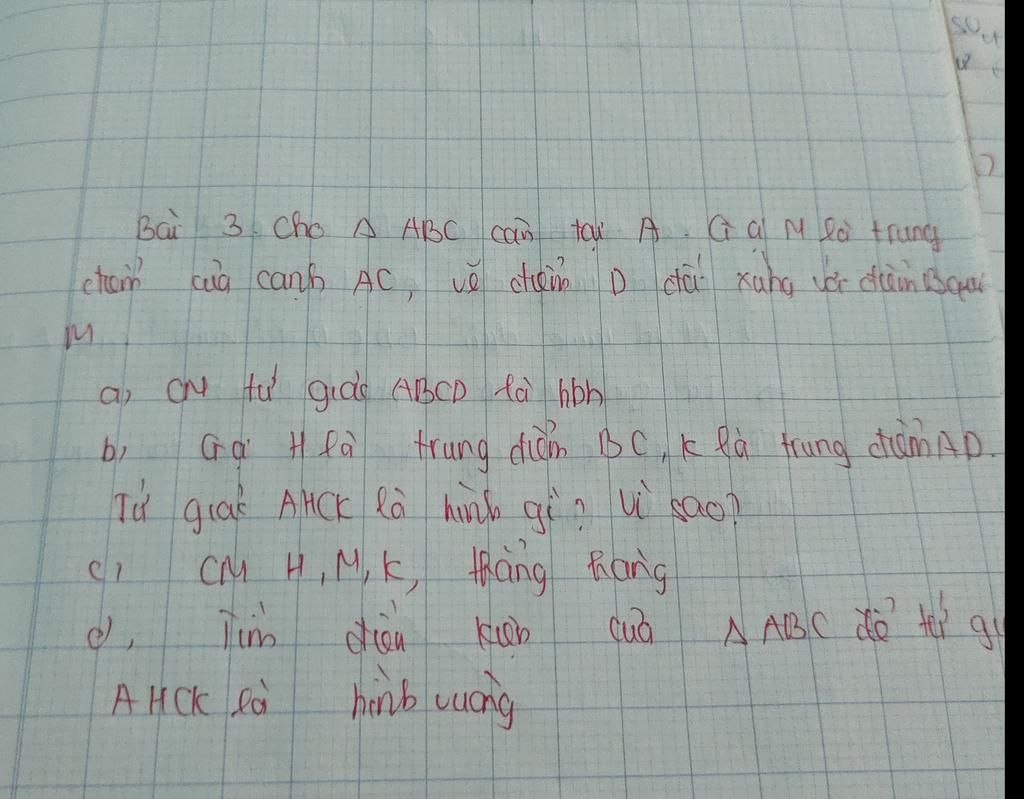 Bài 3. Cho Δ ABC cân tại A. Gọi M là trung
điểm của cạnh AC, vẽ điểm D đối xứng với điểm B qua
M
a, CM tứ giác ABCD là hbh
b, Gọi H là trung điểm BC, K là trung điểm AD.
Tứ giác AHCK là hình gì? Vì sao?
c, CM H, M, K, thẳng hàng
d, Tìm điều kiện của Δ ABC để tứ gi
AHCK là hình vuông